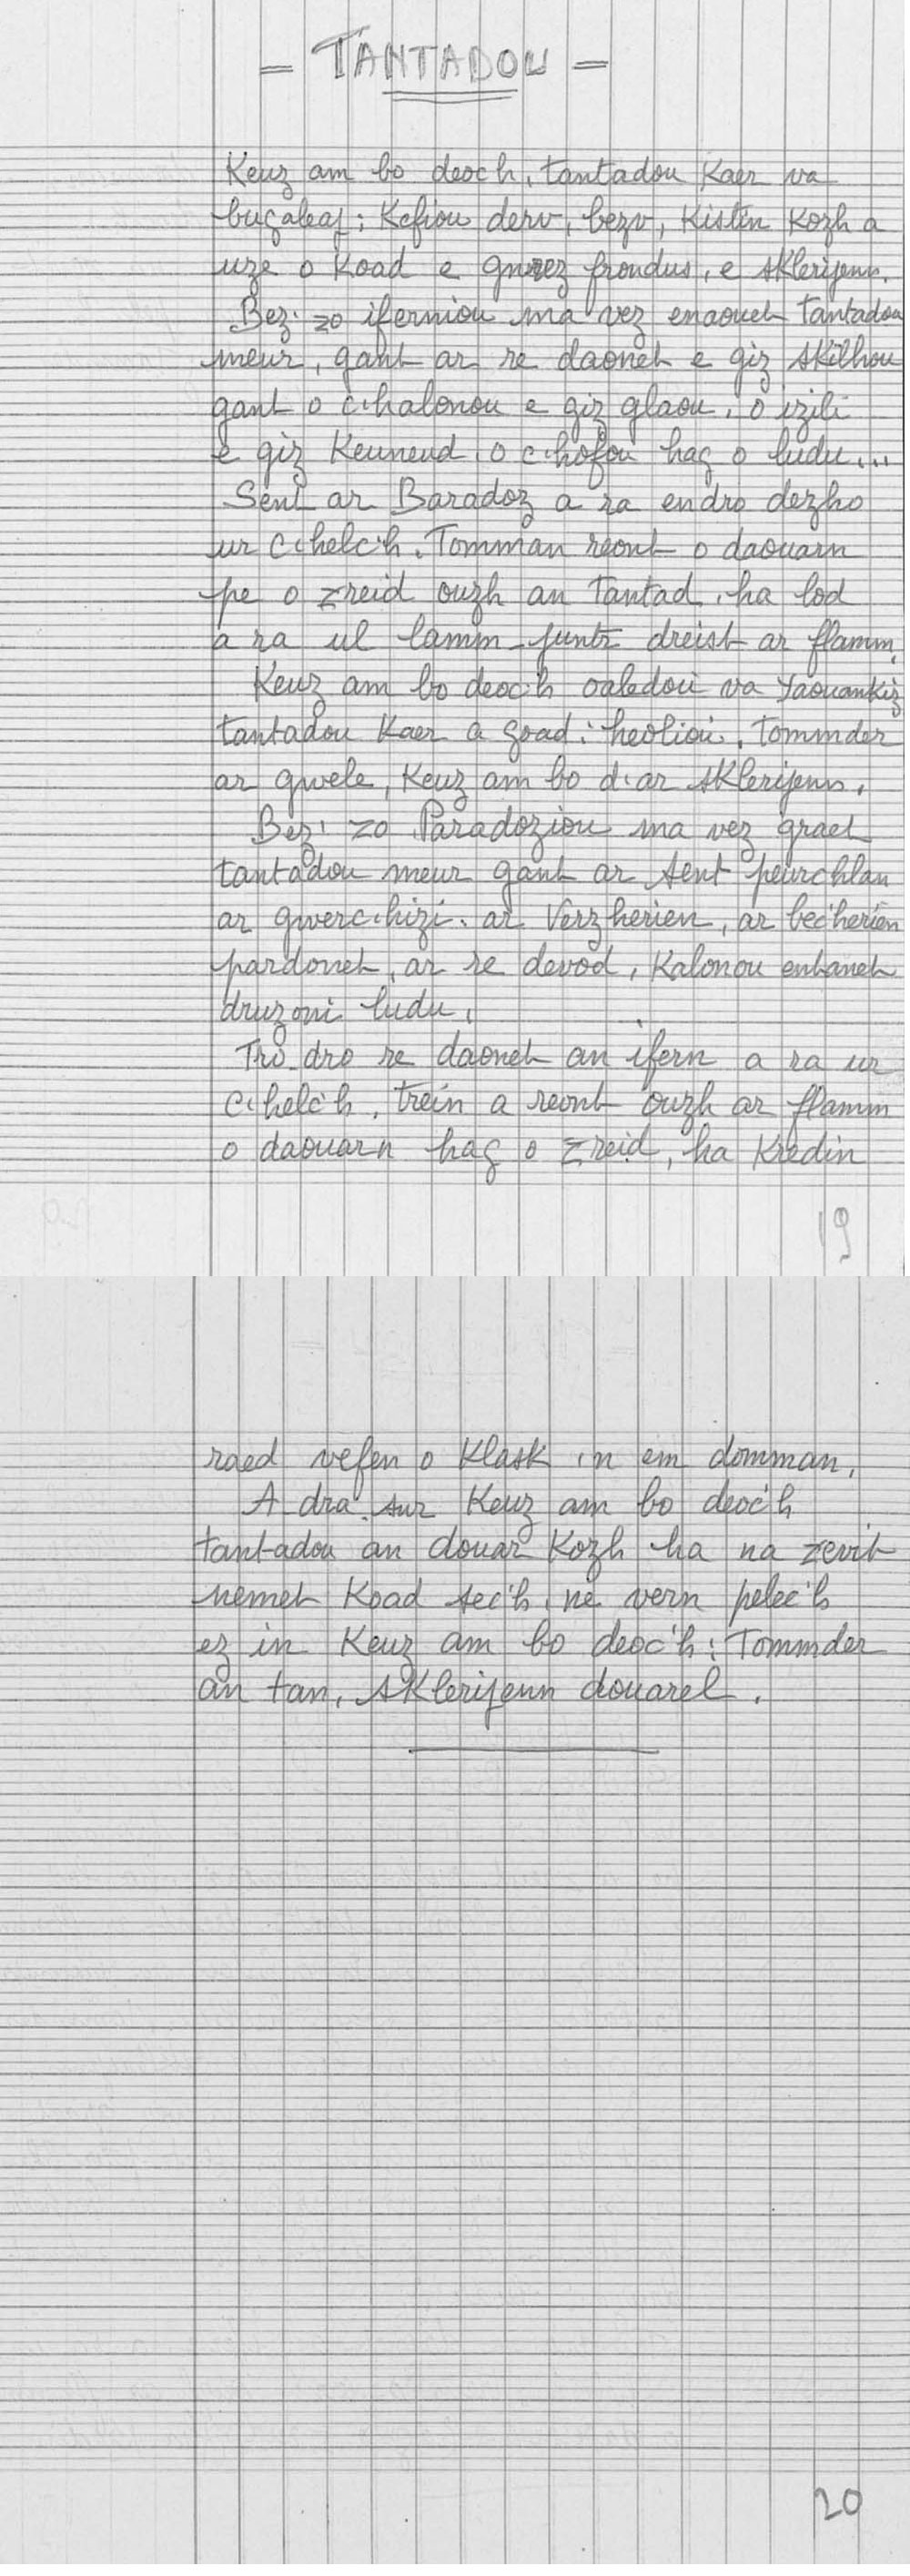 = TANTADOU =
Keuz am bo deoc'h, tantadou Kaer va
bugaleaj; Kefiou derv, bezv, Kistin Kozh a
uze o Koad e gwrez frondus, e sklerijenn.
Bez' zo iferniou ma vez enaouet tantadou
meur, gant ar re daonet e giz skilhou
gant o c'halonou e giz glaou, o izili
e giz Keuneud, o c'hofou hag o ludu...
Sent ar Baradoz a ra endro dezho
ur c'helc'h. Tomman reont o daouarn
pe o zreid ouzh an tantad, ha lod
a ra ul lamm-juntr dreist ar flamm.
Keuz am bo deoc'h oaledou va Yaouankiz
tantadou Kaer a goad: heoliou, Tommder
ar gwele, Keuz am bo d'ar sklerijenn.
Bez' zo Paradoziou ma vez graet
tantadou meur gant ar sent peurc'hlan
ar gwerc'hizi. ar Verzherien, ar bec'herien
pardonet, ar re devod, Kalonou entanet
druzoni ludu.
Tro dro re daonet an ifern a ra ur
c'helc'h, trein a reont ouzh ar flamm
o daouarn hag o zreid, ha Kredin
19
raed vefen o Klask in em domman.
A dra sur Keuz am bo deoc'h
tantadou an douar Kozh ha na zevit
nemet Koad sec'h, ne vern pelec'h
ez in Keuz am bo deoc'h: Tommder
an tan, sklerijenn douarel.
20